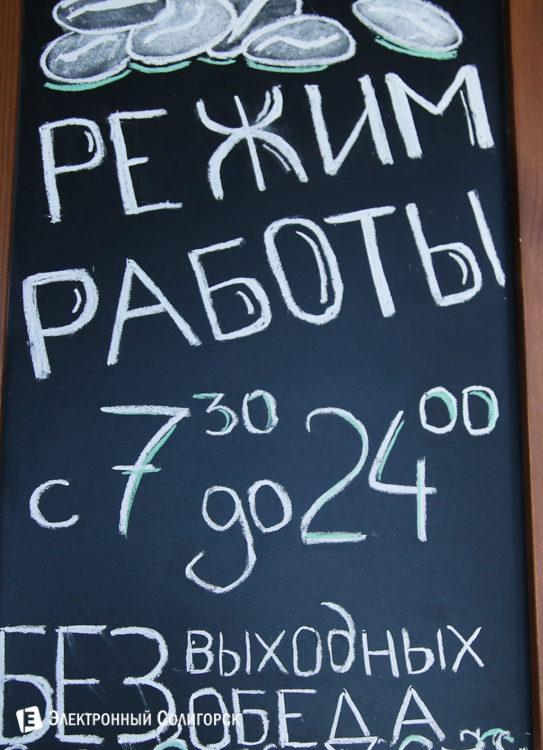 РЕЖИМ
РАБОТЫ
с 7³⁰ до 24⁰⁰
БЕЗ ВЫХОДНЫХ
ОБЕДА
Электронный Солигорск